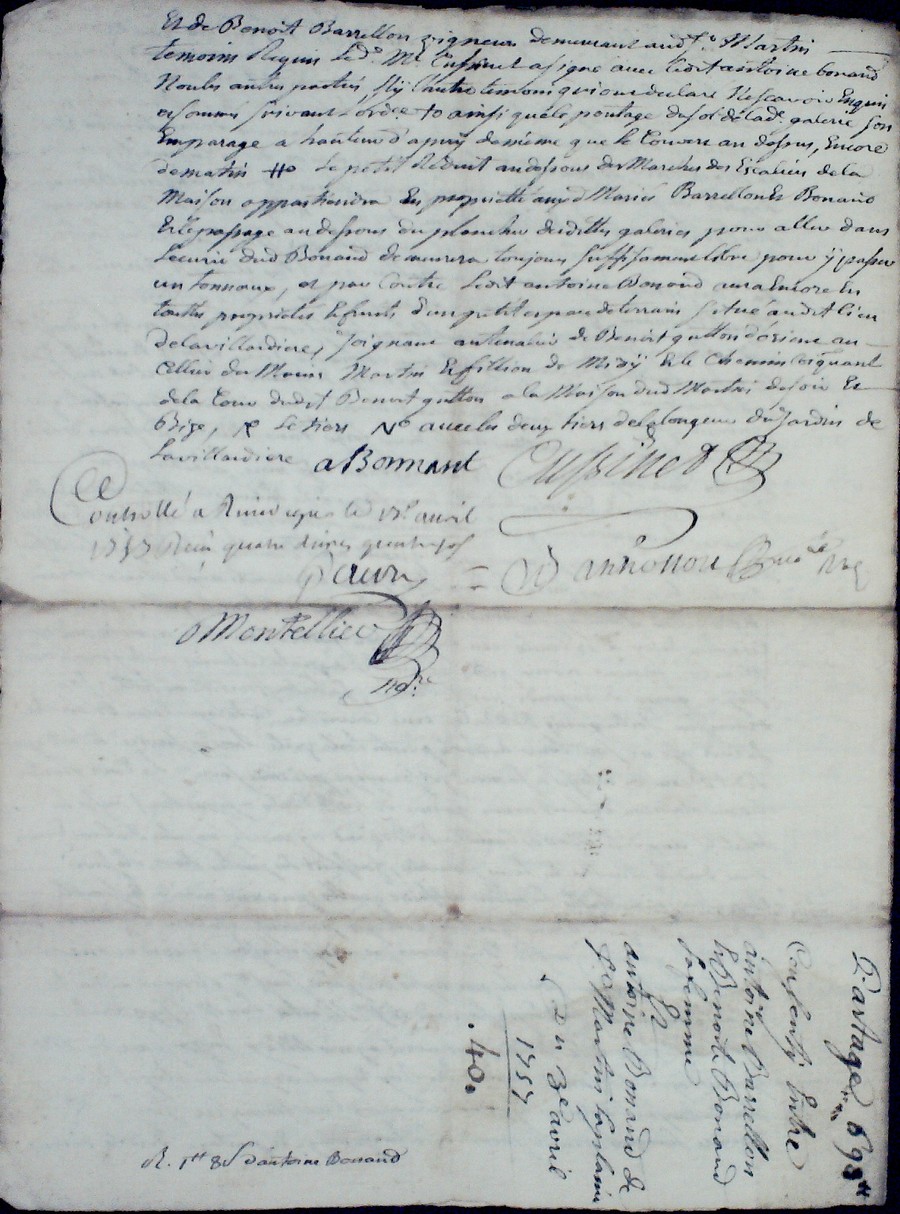 Et de Benoit Barrellon vigneron demeurant aud. St Martin
temoins Requis Led. Me Cussinet a signé avec ledit antoine bonand
Nonles autres parties, Ny l'autre temoin qui ont declaré Nescavoir Enquis
et sommés suivant l'ordce to ainsi quele pontage dusol de lad. galerie son
Emparage a hauteur d'apuy demême que le Couvert au dessus, Encore
de matin #o Le petit Réduit au dessous des Marches des Escaliers de la
Maison appartiendra En proprietté aux d Mariés Barrellon Et Bonand
Et le passage au dessous du plancher desdittes galeries pour aller dans
Lecurie dud Bonand demeurera toujours suffisament libre pour y passer
un tonneaux, et par Contre Ledit antoine Bonand aura Encore En
touttes proprietés Et fruits d'un petit espace de terrain situé audit lieu
delavillardiere, joignant au tenailier de Benoit gutton d'orient au
Cellier du Mouin Martin Et fillion de Midy Et le Chemin loignant
de la Cour dudit Benoit gutton a la Maison dud Martin de soir Et
Bize, Le tiers No avec les deux tiers dela longeur du jardin de
Lavillardiere aBonnant Cussinet
Controllé a Rivedegier le 17e avril
1757 Reçu quatre livres quatre sols
= Dannosson
Montellier
nore
Partage 698 ₶
Consenty Entre
antoine Barrellon
Et Benoite Bonand
sa femme
Et
antoine Bonand de
St Martin laplaine
Du 3e avril
1757
.40.
R. 1₶ 8s d'antoine Bonand